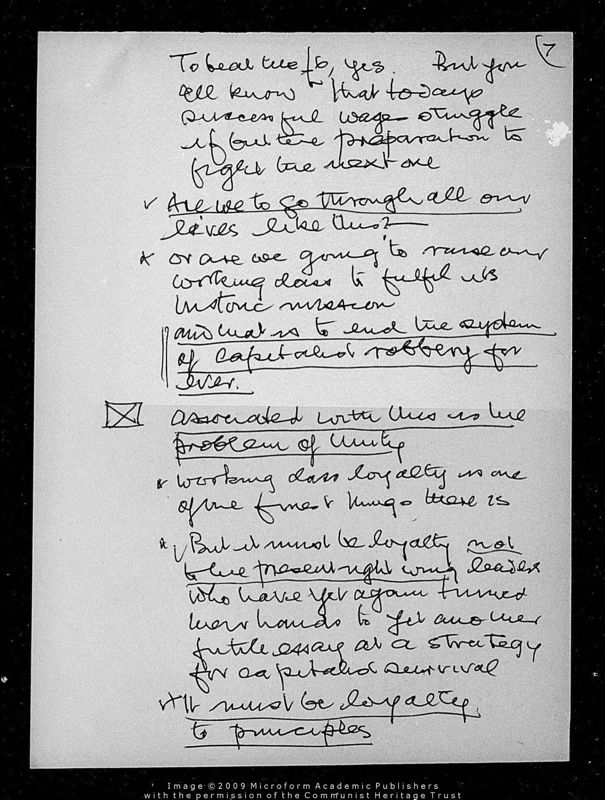 7
To beat the £6, yes. But you
all know that todays
successful wage struggle
if but the preparation to
fight the next one
Are we to go through all our
lives like this?
or are we going to raise our
working class to fulfil its
historic mission
and that is to end the system
of capitalist robbery for
ever.
associated with this is the
problem of Unity
working class loyalty is one
of the finest things there is
But it must be loyalty not
to the present right wing leaders
who have yet again turned
their hands to yet another
futile essay at a strategy
for capitalist survival
It must be loyalty
to principles
Image ©2009 Microform Academic Publishers
with the permission of the Communist Heritage Trust